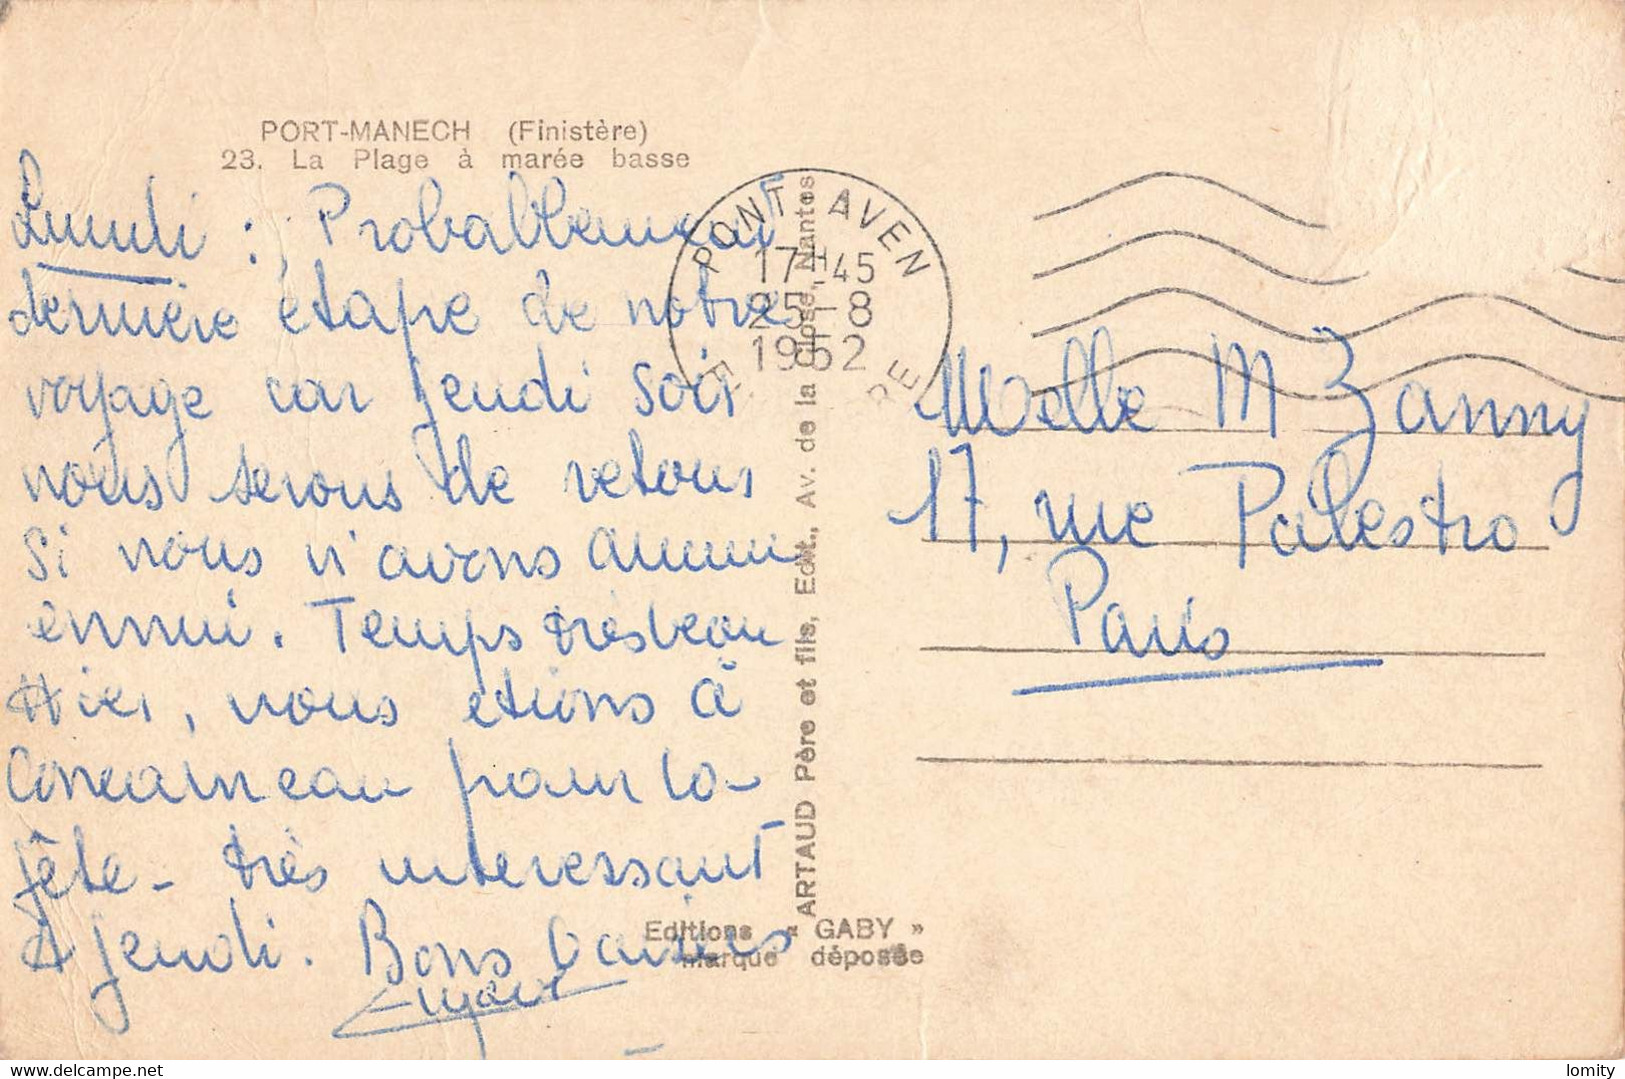 PORT-MANECH (Finistère)
23. La Plage à marée basse
Lundi : Probablement
dernière étape de notre
voyage car jeudi soir
nous serons de retour
Si nous n'avons aucun
ennui. Temps très beau
Hier, nous étions à
Concarneau pour la
fête - très intéressant
A jeudi. Bons baisers
PONT AVEN
17H45
25-8
1952
RE
ARTAUD Père et fils, Edit., Av. de la Close, Nantes
Editions « GABY »
marque déposée
Melle M Zanny
17, rue Palestro
Paris
lomity